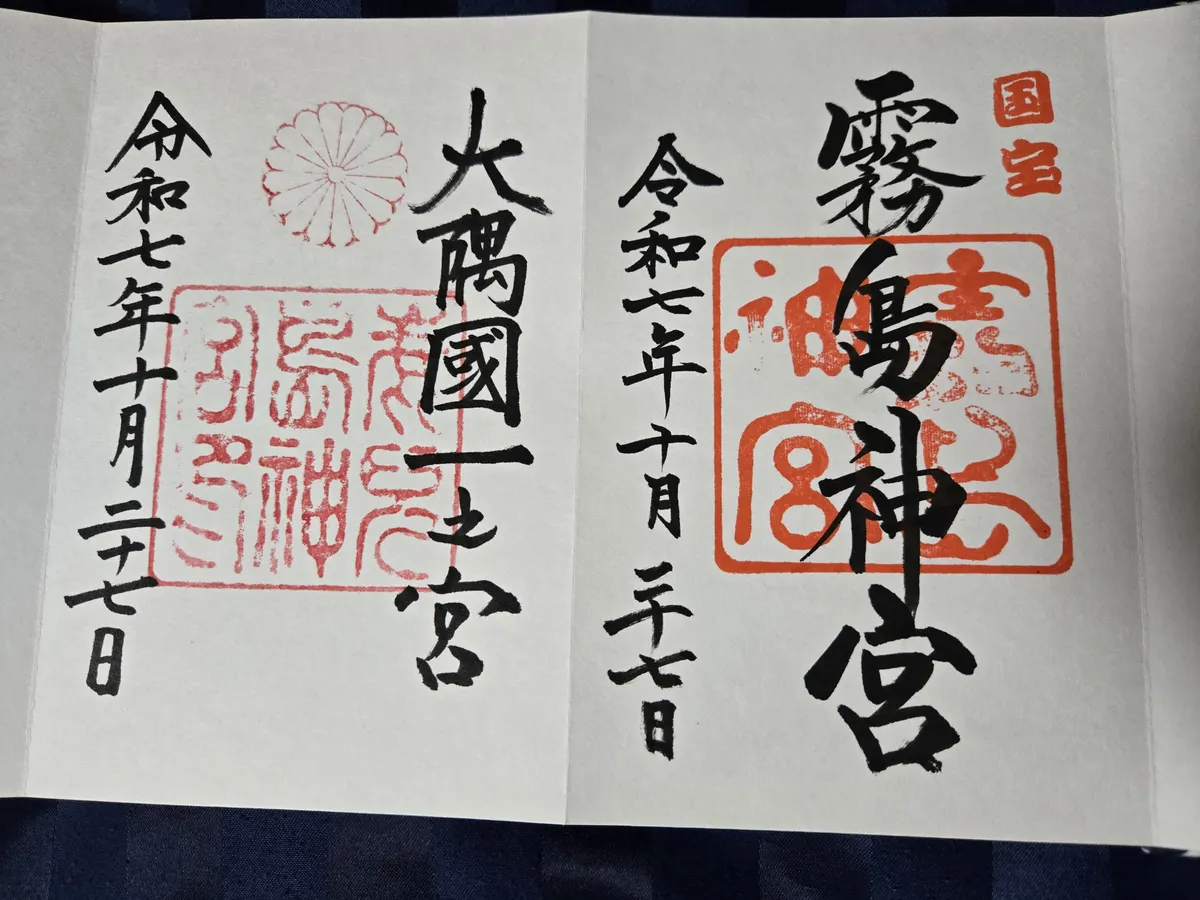 国宝
霧島神宮
霧島
神宮
令和七年十月二十七日
大隅國一之宮
令和七年十月二十七日